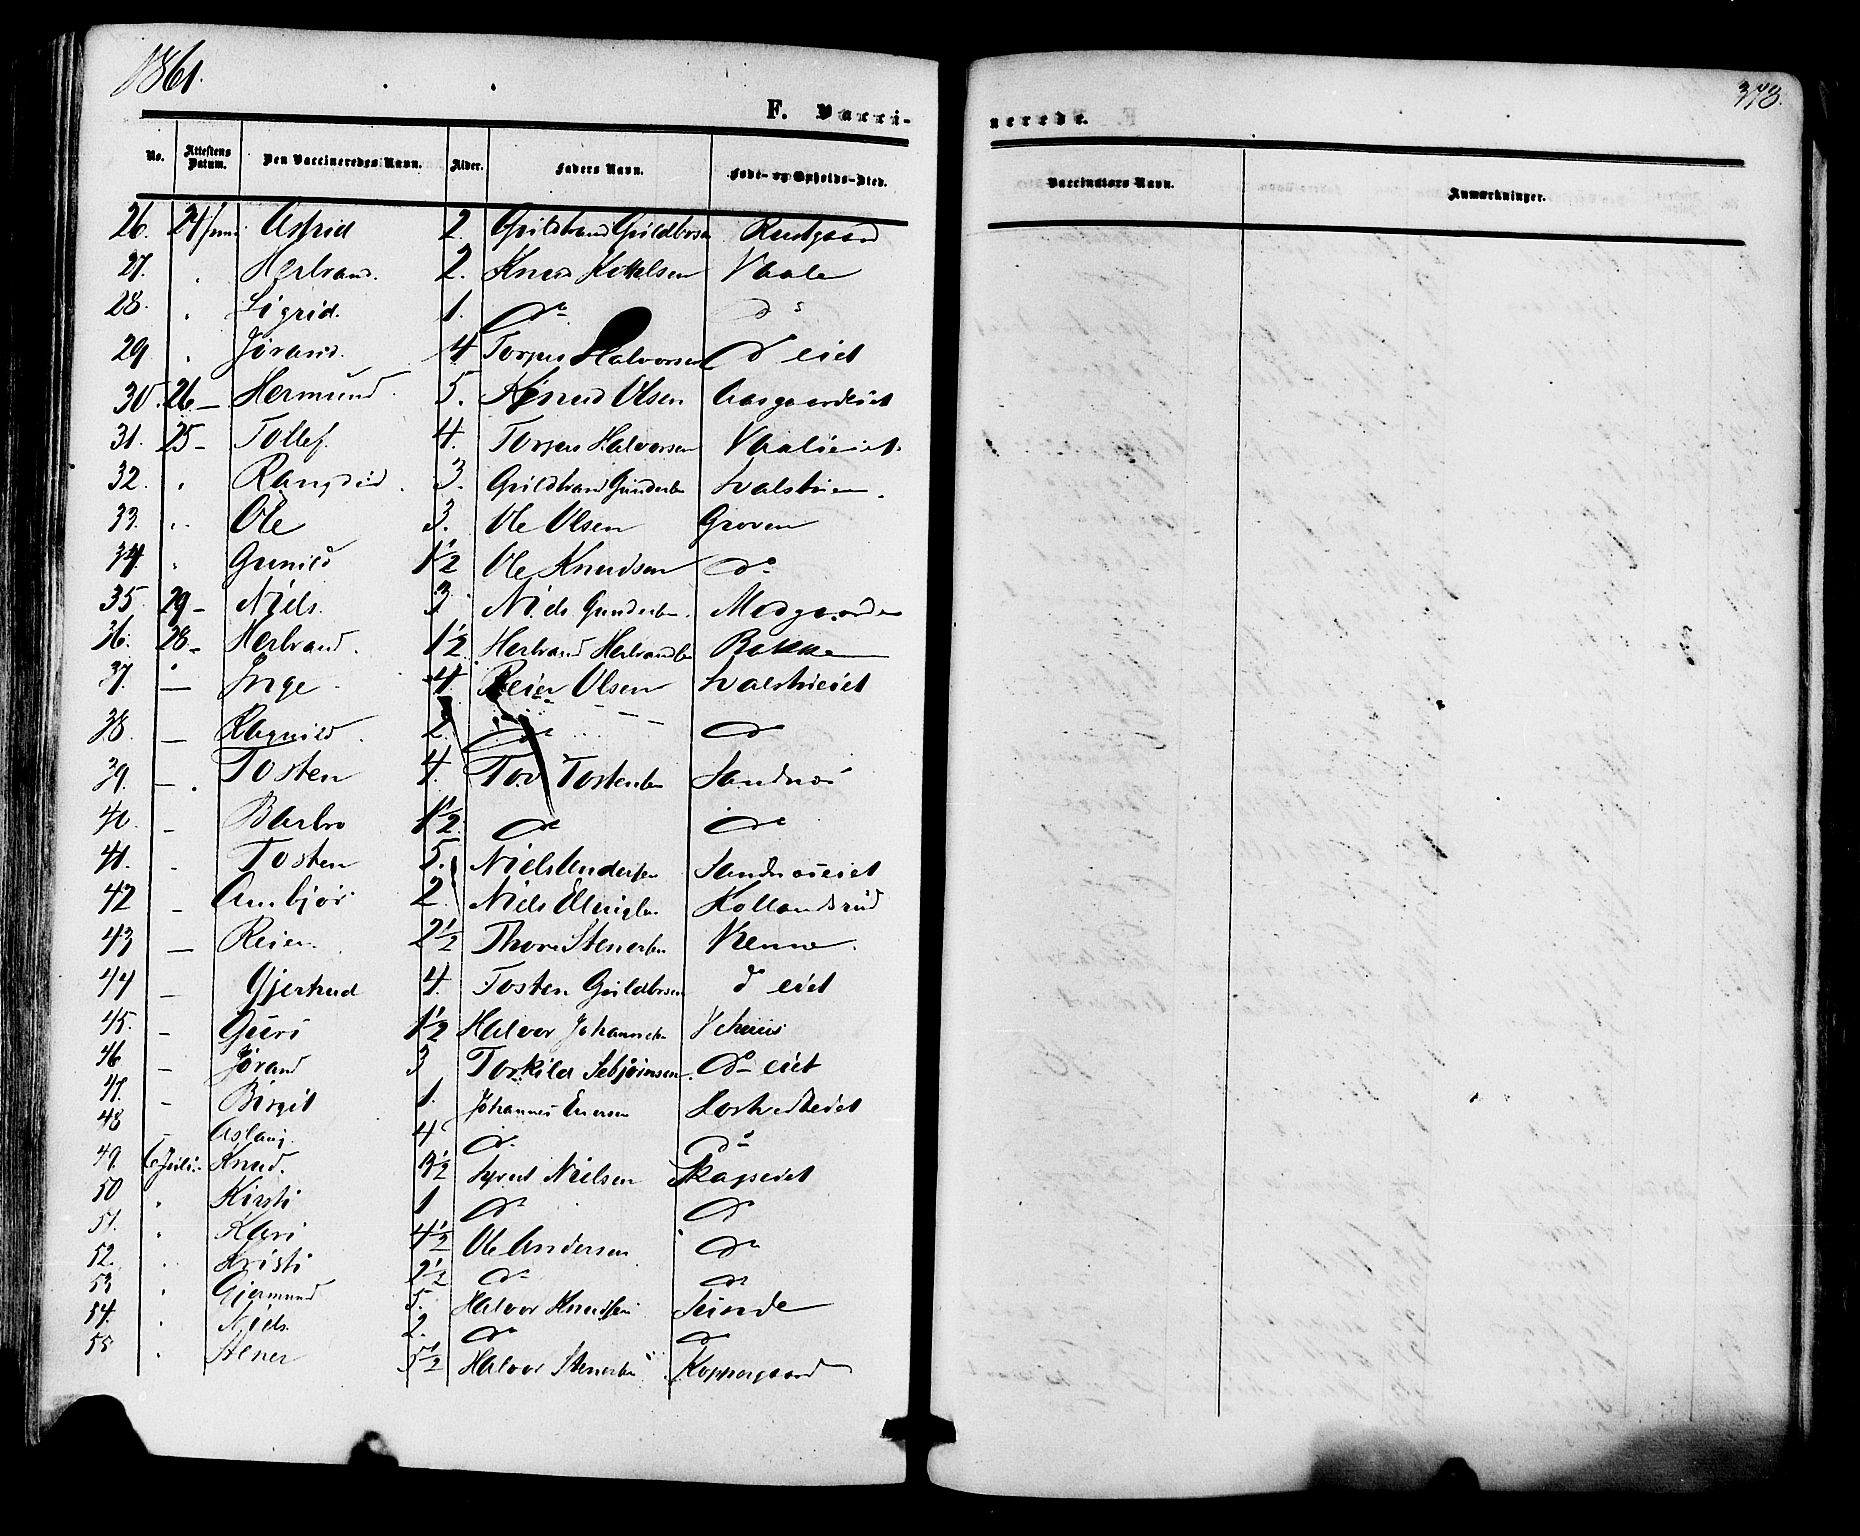 1861.
373.
F. Vacci-
nerede.
No. Attestens Datum. Den Vaccineredes Navn. Alder. Faders Navn. Føde- og Opholds-Sted.
Vaccinators Navn. Anmærkninger.
26. 24/Juni Astrid 2. Guldbrand Guldbrsen Rustgaard
27. " Herbrand. 2. Knud Kittelsen Vaale
28. " Sigrid. 1. do do
29 " Jørand. 4 Torger Halvorsen do eiet
30. 26 - Hermund. 5. Knud Olsen Aasgaardeiet
31. 25 - Tollef. 4. Torger Halvorsen Vaaleeiet.
32. " Rangdid. 3. Guldbrand Gundersen
33. " Ole 3. Ole Olsen Groven
34. " Gunild 1½ Ole Knudsen do
35. 29 - Niels. 3 Niels Gundersen Modgaarden
36. 28 - Herbrand. 1½ Herbrand Herbrandsen Bakken
37. — Inge. 4. Reier Olsen
38. — Ragnild. 2. do do
39. — Tosten 4. Tov Tostensen Sandnæs
40. - Barbro 1½ do do
41. - Tosten 5. Niels Andersen Sandnæseiet
42 - Ambjør 2. Niels Ellingsen Kollandsrud
43 — Reier. 2½ Thore Stenersen
44 — Gjertrud 4. Tosten Guldbrsen do eiet
45. - Guri 1½ Halvor Johannesen
46 - Jørand 3 Torkild Sebjørnsen do eiet
47. - Birgit 1. Johannes Eversen
48 - Aslaug. 4 do do
49. 6 Juli. Knud. 3½ Syvert Nielsen Skagseiet
50 " Kirsti 1 do do
51. " Kari 4½ Ole Andersen do
52. " Kristi 2½ do do
53 " Gjermund 5. Halvor Knudsen Teinde
54. " Niels. 2. do do
55 " Stener 5½ Halvor Stenersen Koppergaard